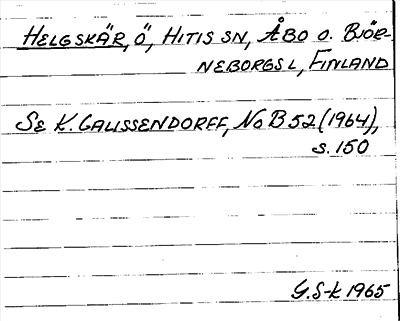 HELGSKÄR, Ö, HITIS SN, ÅBO O. BJÖR-
NEBORGS L, FINLAND
SE K. GAUSSENDORFF, No B 52 (1964),
s. 150
G.S-K 1965